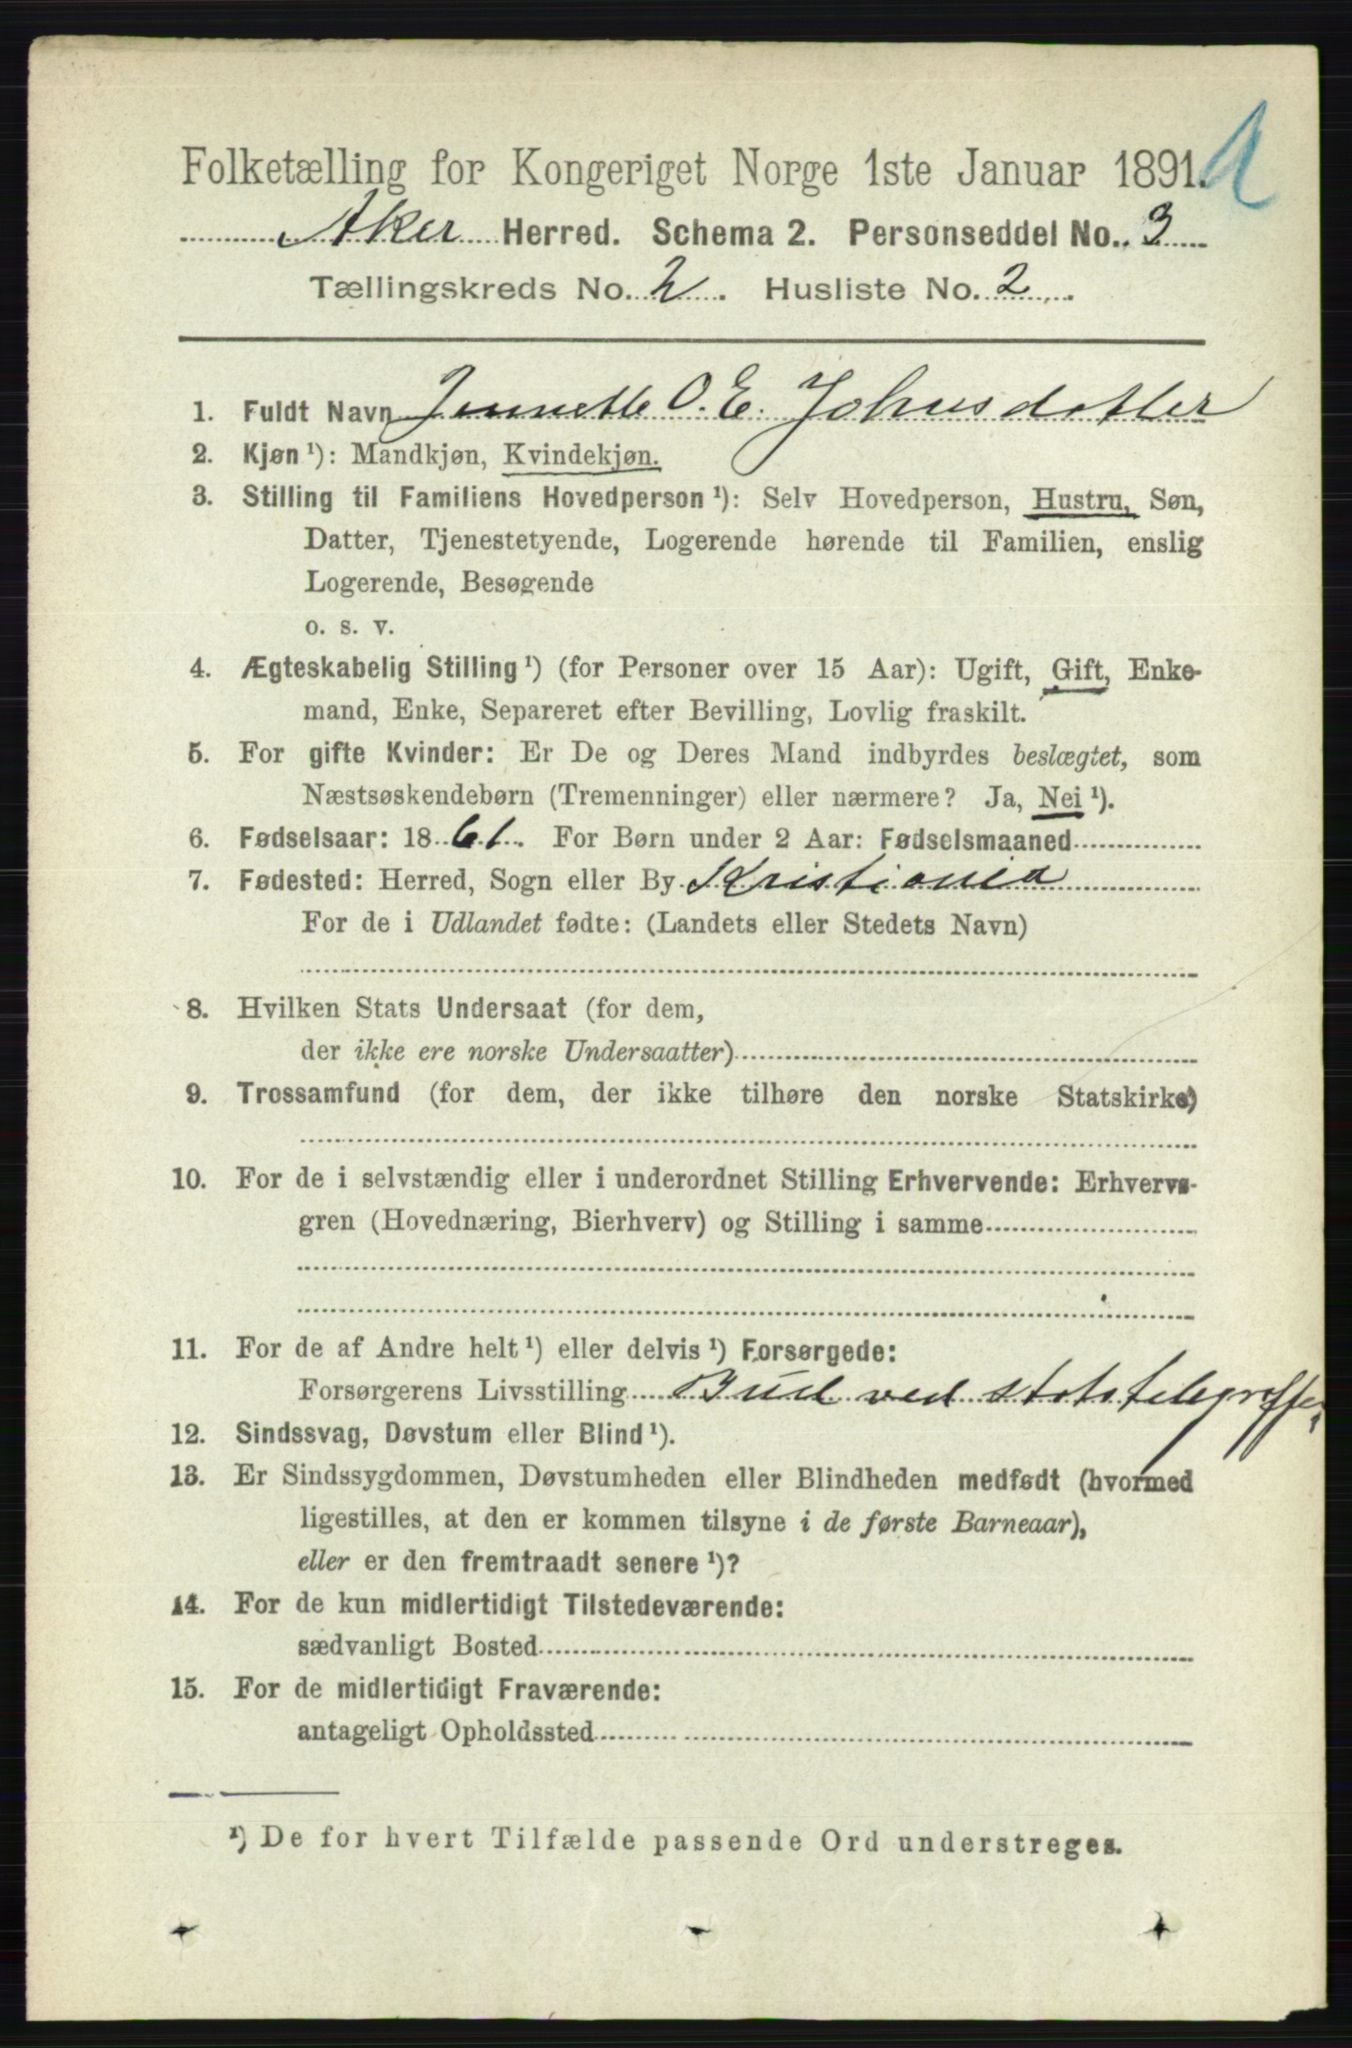 Folketælling for Kongeriget Norge 1ste Januar 1891.
Aker Herred. Schema 2. Personseddel No. 3
Tællingskreds No. 2. Husliste No. 2.
1. Fuldt Navn Jennette O. E. Johnsdatter
2. Kjøn ¹): Mandkjøn, Kvindekjøn.
3. Stilling til Familiens Hovedperson ¹): Selv Hovedperson, Hustru, Søn,
Datter, Tjenestetyende, Logerende hørende til Familien, enslig
Logerende, Besøgende
o. s. v.
4. Ægteskabelig Stilling ¹) (for Personer over 15 Aar): Ugift, Gift, Enke-
mand, Enke, Separeret efter Bevilling, Lovlig fraskilt.
5. For gifte Kvinder: Er De og Deres Mand indbyrdes beslægtet, som
Næstsøskendebørn (Tremenninger) eller nærmere? Ja, Nei ¹).
6. Fødselsaar: 1861. For Børn under 2 Aar: Fødselsmaaned
7. Fødested: Herred, Sogn eller By Kristiania
For de i Udlandet fødte: (Landets eller Stedets Navn)
8. Hvilken Stats Undersaat (for dem,
der ikke ere norske Undersaatter)
9. Trossamfund (for dem, der ikke tilhøre den norske Statskirke)
10. For de i selvstændig eller i underordnet Stilling Erhvervende: Erhvervs-
gren (Hovednæring, Bierhverv) og Stilling i samme
11. For de af Andre helt ¹) eller delvis ¹) Forsørgede:
Forsørgerens Livsstilling Bud ved statstelegraffen,
12. Sindssvag, Døvstum eller Blind ¹).
13. Er Sindssygdommen, Døvstumheden eller Blindheden medfødt (hvormed
ligestilles, at den er kommen tilsyne i de første Barneaar),
eller er den fremtraadt senere ¹)?
14. For de kun midlertidigt Tilstedeværende:
sædvanligt Bosted
15. For de midlertidigt Fraværende:
antageligt Opholdssted
¹) De for hvert Tilfælde passende Ord understreges.